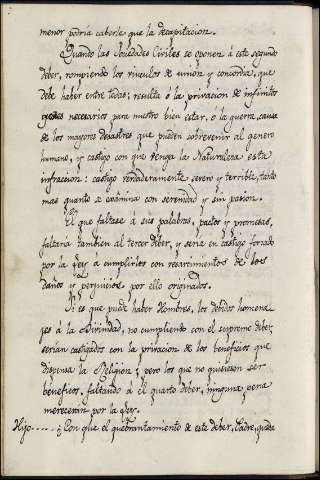 menor podria caberle que la decapitacion.
Quando las Sociedades Civiles se oponen á este segundo
deber, rompiendo los vinculos de union y concordia, que
debe haber entre todas; resulta ó la privacion de infinitos
necesarios para nuestro bien estar, ó la guerra, causa
de los mayores desastres que pueden sobrevenir al genero
humano, y castigo con que venga la Naturaleza esta
infraccion: castigo verdaderamente severo y terrible, tanto
mas quanto se exâmina con serenidad y sin pasion.
El que faltase á sus palabras, pactos y promesas,
faltaria tambien al tercer deber, y seria en castigo forzado
por la Ley á cumplirlos con resarcimientos de los
daños y perjuicios por ello originados.
Si es que puede haber Hombres, los debidos homena-
jes á la Divinidad, no cumpliendo con el supremo deber,
serían castigados con la privacion de los beneficios que
dispensa la Religion; pero los que no quisiesen ser
beneficos, faltando á el quarto deber, ninguna pena
merecerán por la Ley.
Hijo.....¿Con que el quebrantamiento de este deber, Padre, puede